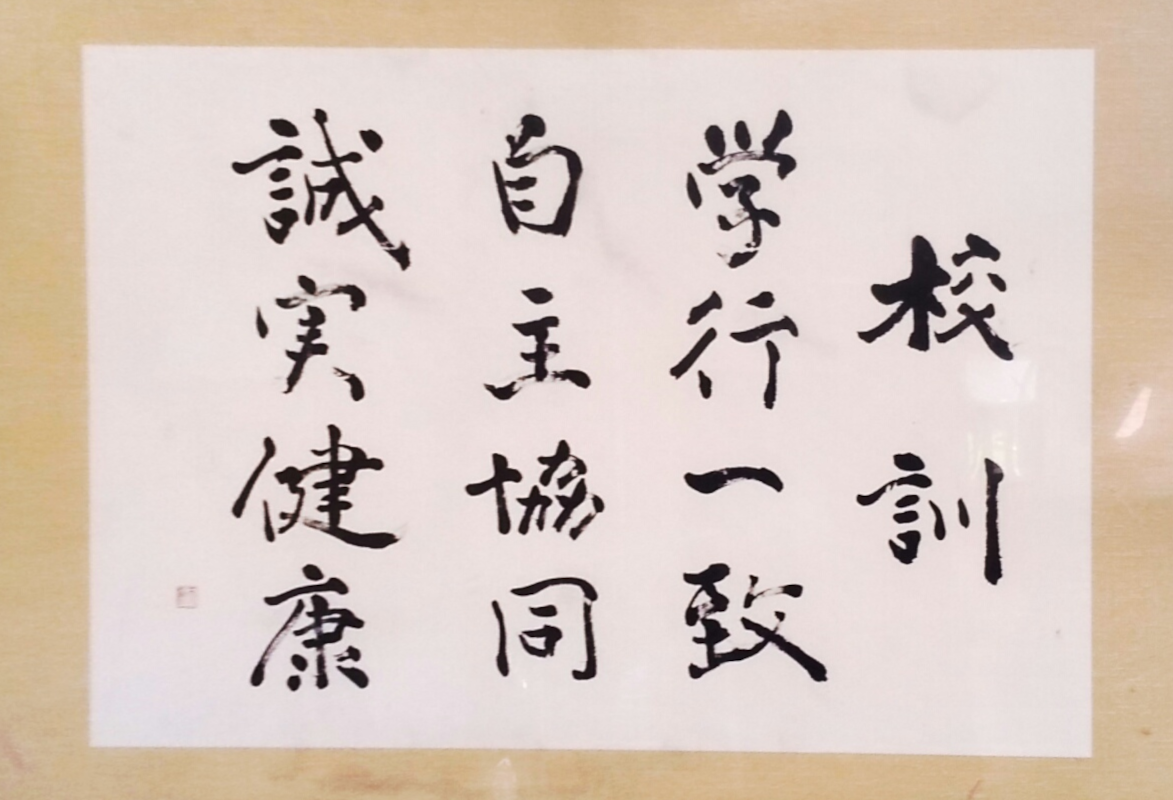 校訓
学行一致
自主協同
誠実健康